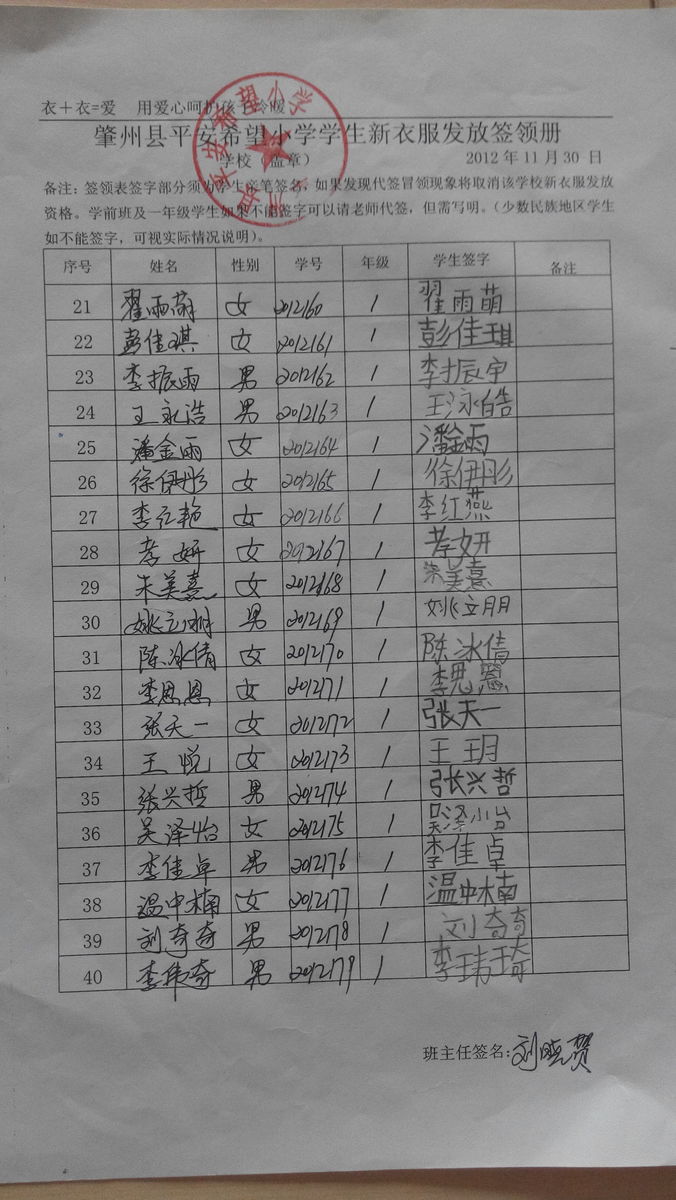 衣＋衣=爱 用爱心呵护孩子冷暖
肇州县平安希望小学学生新衣服发放签领册
学校（盖章） 2012 年 11 月 30 日
备注：签领表签字部分须为学生亲笔签名，如果发现代签冒领现象将取消该学校新衣服发放
资格。学前班及一年级学生如果不能签字可以请老师代签，但需写明。（少数民族地区学生
如不能签字，可视实际情况说明）。
序号 姓名 性别 学号 年级 学生签字 备注
21 翟雨萌 女 2012160 1 翟雨萌
22 彭佳琪 女 2012161 1 彭佳琪
23 李振雨 男 2012162 1 李振宇
24 王永浩 男 2012163 1 王泳皓
25 潘金雨 女 2012164 1 潘金雨
26 徐伊彤 女 2012165 1 徐伊彤
27 李红艳 女 2012166 1 李红燕
28 李妍 女 2012167 1 李妍
29 朱美熹 女 2012168 1 朱美熹
30 姚立朋 男 2012169 1 姚立朋
31 陈冰倩 女 2012170 1 陈冰倩
32 李思恩 女 2012171 1 李思恩
33 张天一 女 2012172 1 张天一
34 王悦 女 2012173 1 王玥
35 张兴哲 男 2012174 1 张兴哲
36 吴泽怡 女 2012175 1 吴泽怡
37 李佳卓 男 2012176 1 李佳卓
38 温中楠 女 2012177 1 温中楠
39 刘奇奇 男 2012178 1 刘奇奇
40 李伟奇 男 2012179 1 李玮琦
班主任签名：刘晓贺